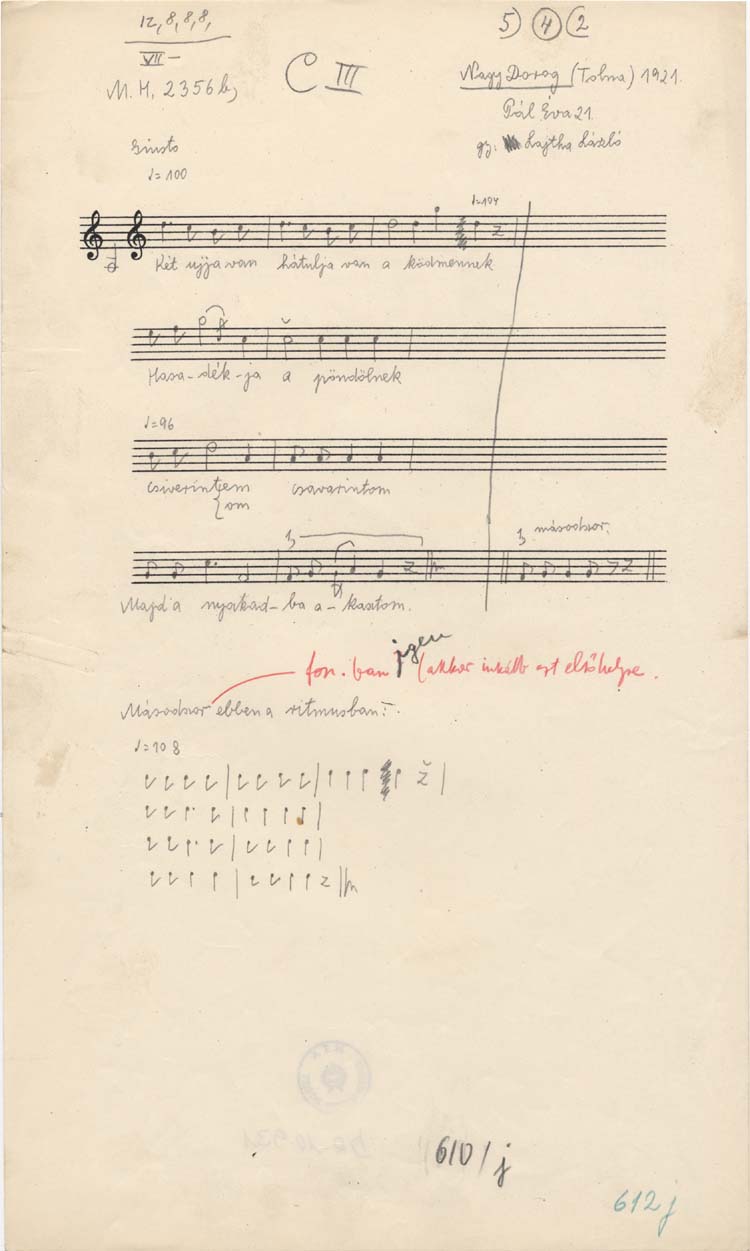 12, 8, 8, 8,
VII –
M. H. 2356 b,
C III
5) 4 2
Nagy Dorog (Tolna) 1921.
Pál Éva 21.
gy: Lajtha László
Giusto
♩=100
♩=104
Két ujja van hátulja van a ködmennek
Hasa-dék-ja a pöndölnek
♩=96
csiverintem csavarintom
{om
3 másodszor.
3
Majd a nyakad-ba a-kasztom.
igen
fon. ban (akkor inkább ezt első helyre.
Másodszor ebben a ritmusban:
♩=108
610/j
612 j